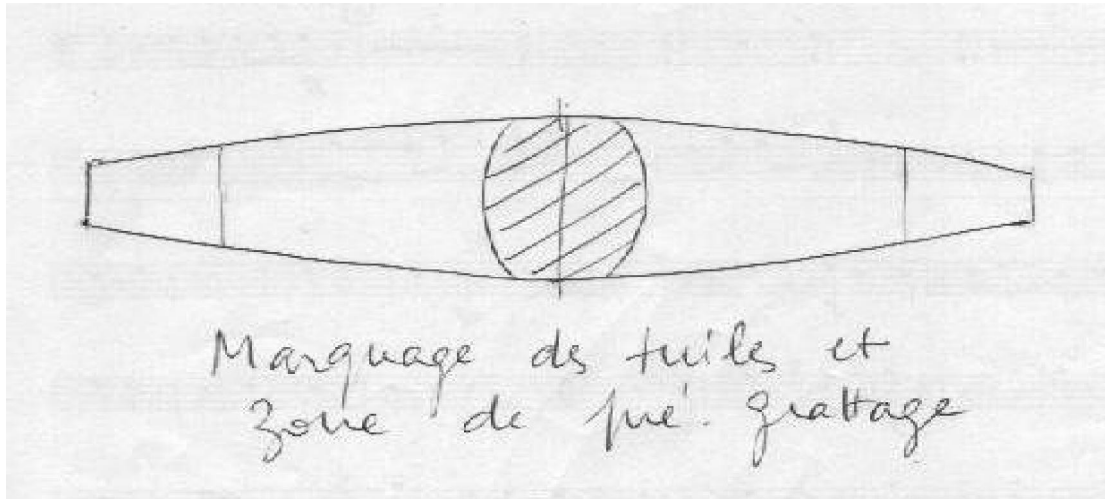 Marquage des tuiles et
zone de pré-grattage